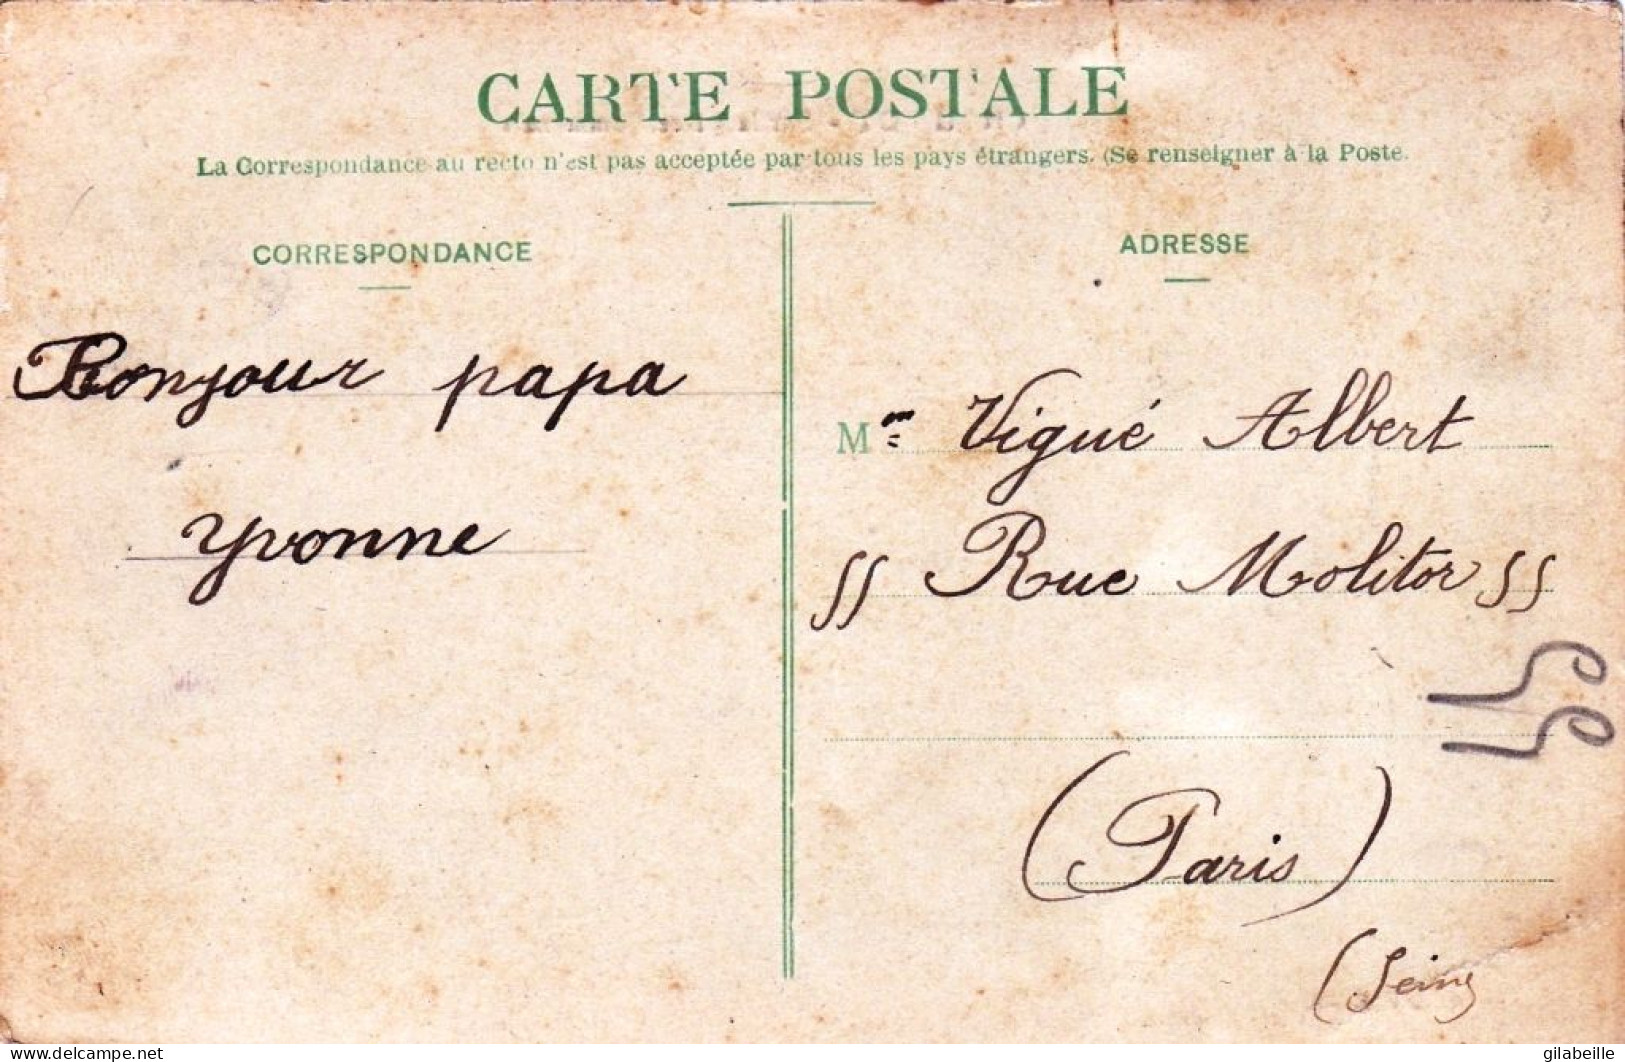 CARTE POSTALE
La Correspondance au recto n'est pas acceptée par tous les pays étrangers. (Se renseigner à la Poste.
CORRESPONDANCE
Bonjour papa
Yvonne
ADRESSE
M Vigué Albert
55 Rue Molitor 55
(Paris)
(Seine)
delcampe.net
gilabeille